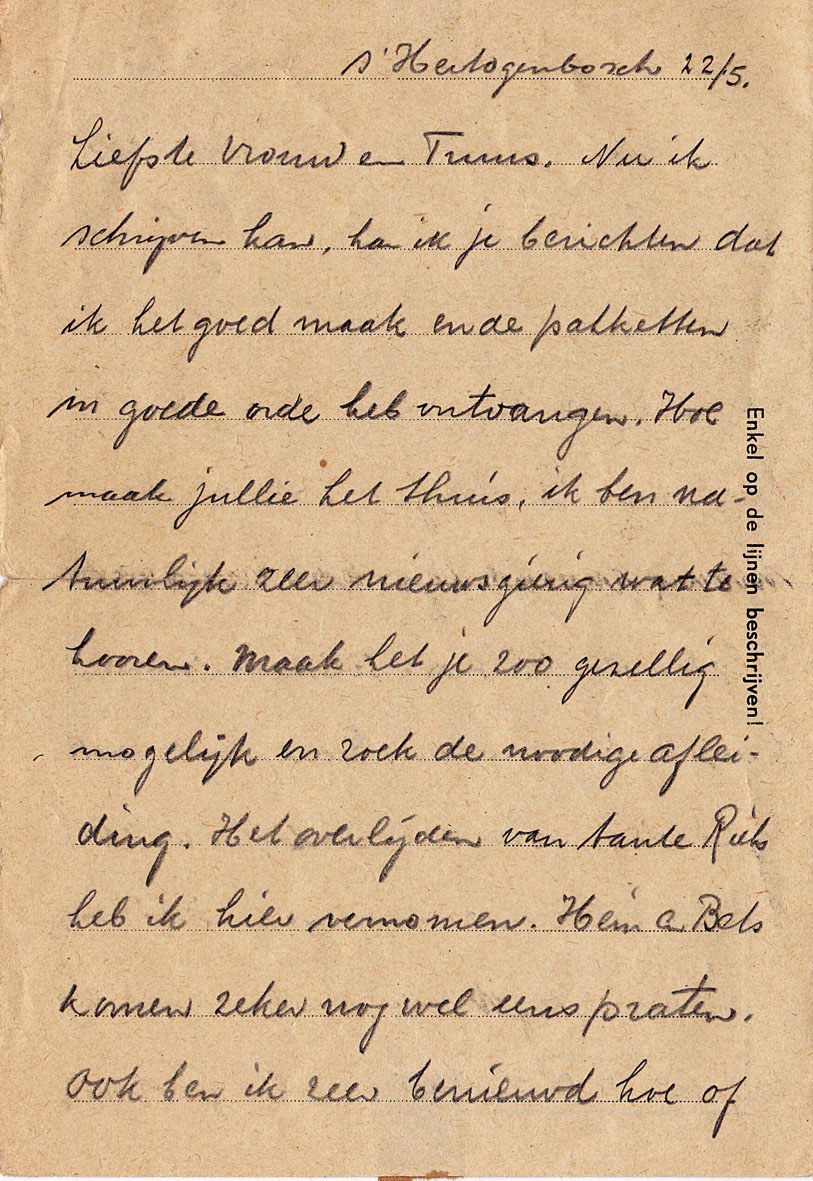 s'Hertogenbosch 22/5.
Liefste Vrouw en Truus. Nu ik
schrijven kan, kan ik je berichten dat
ik het goed maak en de pakketten
in goede orde heb ontvangen. Hoe
maak jullie het thuis, ik ben na-
tuurlijk zeer nieuwsgierig wat te
hooren. Maak het je zoo gezellig
mogelijk en zoek de noodige aflei-
ding. Het overlijden van tante Riek
heb ik hier vernomen. Hein en Bets
komen zeker nog wel eens praten.
Ook ben ik zeer benieuwd hoe of
Enkel op de lijnen beschrijven!